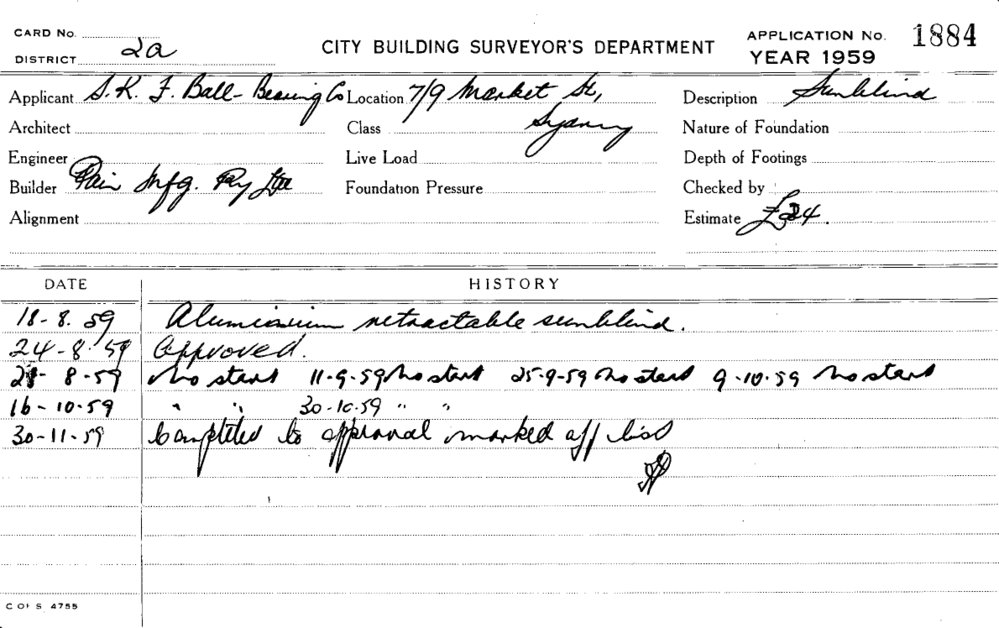 CARD No.
DISTRICT 2a
CITY BUILDING SURVEYOR'S DEPARTMENT
APPLICATION No. 1884
YEAR 1959
Applicant S.K.F. Ball-Bearing Co Location 7/9 Market St, Description Sunblind
Architect Class Sydney Nature of Foundation
Engineer Live Load Depth of Footings
Builder Mfg. Pty Ltd Foundation Pressure Checked by
Alignment Estimate £34.
DATE HISTORY
18-8.59 Aluminium retractable sunblind.
24-8-59 Approved.
8-59 No start 11-9-59 No start 25-9-59 No start 9-10-59 No start
16-10-59 " " 30-10-59 " "
30-11-59 Completed to approval marked off list
C OF S 4755